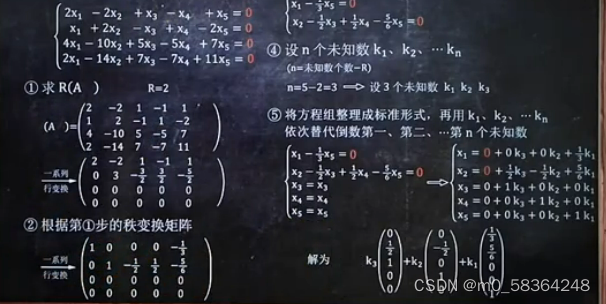 2x₁ − 2x₂ + x₃ − x₄ + x₅ = 0
x₁ + 2x₂ − x₃ + x₄ − 2x₅ = 0
4x₁ − 10x₂ + 5x₃ − 5x₄ + 7x₅ = 0
2x₁ − 14x₂ + 7x₃ − 7x₄ + 11x₅ = 0
① 求 R(A) R=2
(A )=
2 −2 1 −1 1
1 2 −1 1 −2
4 −10 5 −5 7
2 −14 7 −7 11
一系列
行变换
2 −2 1 −1 1
0 3 −3/2 3/2 −5/2
0 0 0 0 0
0 0 0 0 0
② 根据第①步的秩变换矩阵
一系列
行变换
1 0 0 0 −1/3
0 1 −1/2 1/2 −5/6
0 0 0 0 0
0 0 0 0 0
x₁ − 1/3 x₅ = 0
x₂ − 1/2 x₃ + 1/2 x₄ − 5/6 x₅ = 0
④ 设 n 个未知数 k₁、k₂、⋯ kₙ
(n=未知数个数−R)
n=5−2=3 ⟹ 设 3 个未知数 k₁ k₂ k₃
⑤ 将方程组整理成标准形式，再用 k₁、k₂、⋯ kₙ
依次替代倒数第一、第二、⋯第 n 个未知数
x₁ − 1/3 x₅ = 0
x₂ − 1/2 x₃ + 1/2 x₄ − 5/6 x₅ = 0
x₃ = x₃
x₄ = x₄
x₅ = x₅
⟹
x₁ = 0 + 0 k₃ + 0 k₂ + 1/3 k₁
x₂ = 0 + 1/2 k₃ − 1/2 k₂ + 5/6 k₁
x₃ = 0 + 1 k₃ + 0 k₂ + 0 k₁
x₄ = 0 + 0 k₃ + 1 k₂ + 0 k₁
x₅ = 0 + 0 k₃ + 0 k₂ + 1 k₁
解为
k₃ (0 1/2 1 0 0) + k₂ (0 −1/2 0 1 0) + k₁ (1/3 5/6 0 0 1)
CSDN @m0_58364248